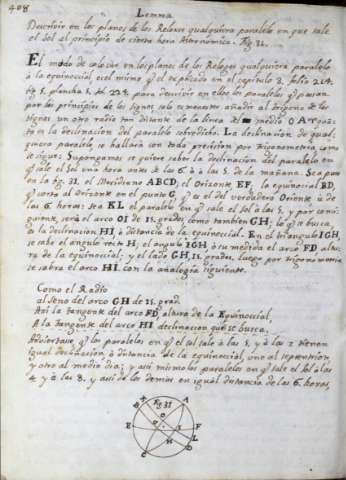 408
Lemma
Descrivir en los planos de los Reloxes qualquiera paralelo en que sale
el sol al principio de cierta hora Astronomica. Fig. 31.
El modo de colocar en los planos de los Reloxes qualquiera paralelo
à la equinoccial, es el mismo q̃ el explicado en el capitulo 2, folio 214
fig. 5, plancha 5, fol. 224 para descrivir en ellos los paralelos q̃ passan
por los principios de los signos, solo es menester añadir al trigono de los
signos un otro radio tan distante de la linea del medio O A
en la declinacion del paralelo sobredicho. La declinacion de qual-
quiera paralelo, se hallarà con toda precision por trigonometria como
se sigue: Supongamos se quiere saber la declinacion del paralelo en
q̃ sale el sol una hora antes de las 6. ò à las 5. de la mañana. Sea pues
en la fig. 31. el Meridiano ABCD, el Orizonte EF, la equinoccial BD,
q̃ corta al Orizonte en el punto G, q̃ es el del verdadero Oriente ù de
las 6. horas: sea KL el paralelo en q̃ sale el sol à las 5. y por consi-
guiente, serà el arco OI de 15. grados como tambien GH; lo q̃ se busca
es la declinacion HI, ò distancia de la equinoccial. En el triangulo IGH,
se sabe el angulo recto H; el angulo IGH, ò su medida el arco FD altu-
ra de la equinoccial; y el lado GH, 15. grados, luego por trigonometria
se sabra el arco HI. con la analogia siguiente.
Como el Radio
al seno del arco GH de 15. grad.
Asi la tangente del arco FD, altura de la Equinoccial,
A la tangente del arco HI declinacion que se busca.
Adviertase q̃ los paralelos en q̃ el sol sale à las 5, y à las 7 tienen
igual declinacion, ò distancia de la equinoccial, uno al septentrion,
y otro al medio dia; y asi mismo los paralelos en q̃ sale el sol à las
4 y à las 8. y asi de los demas en igual distancia de las 6. horas,
Fig. 31
B K A
O
E G I F
H L
C D